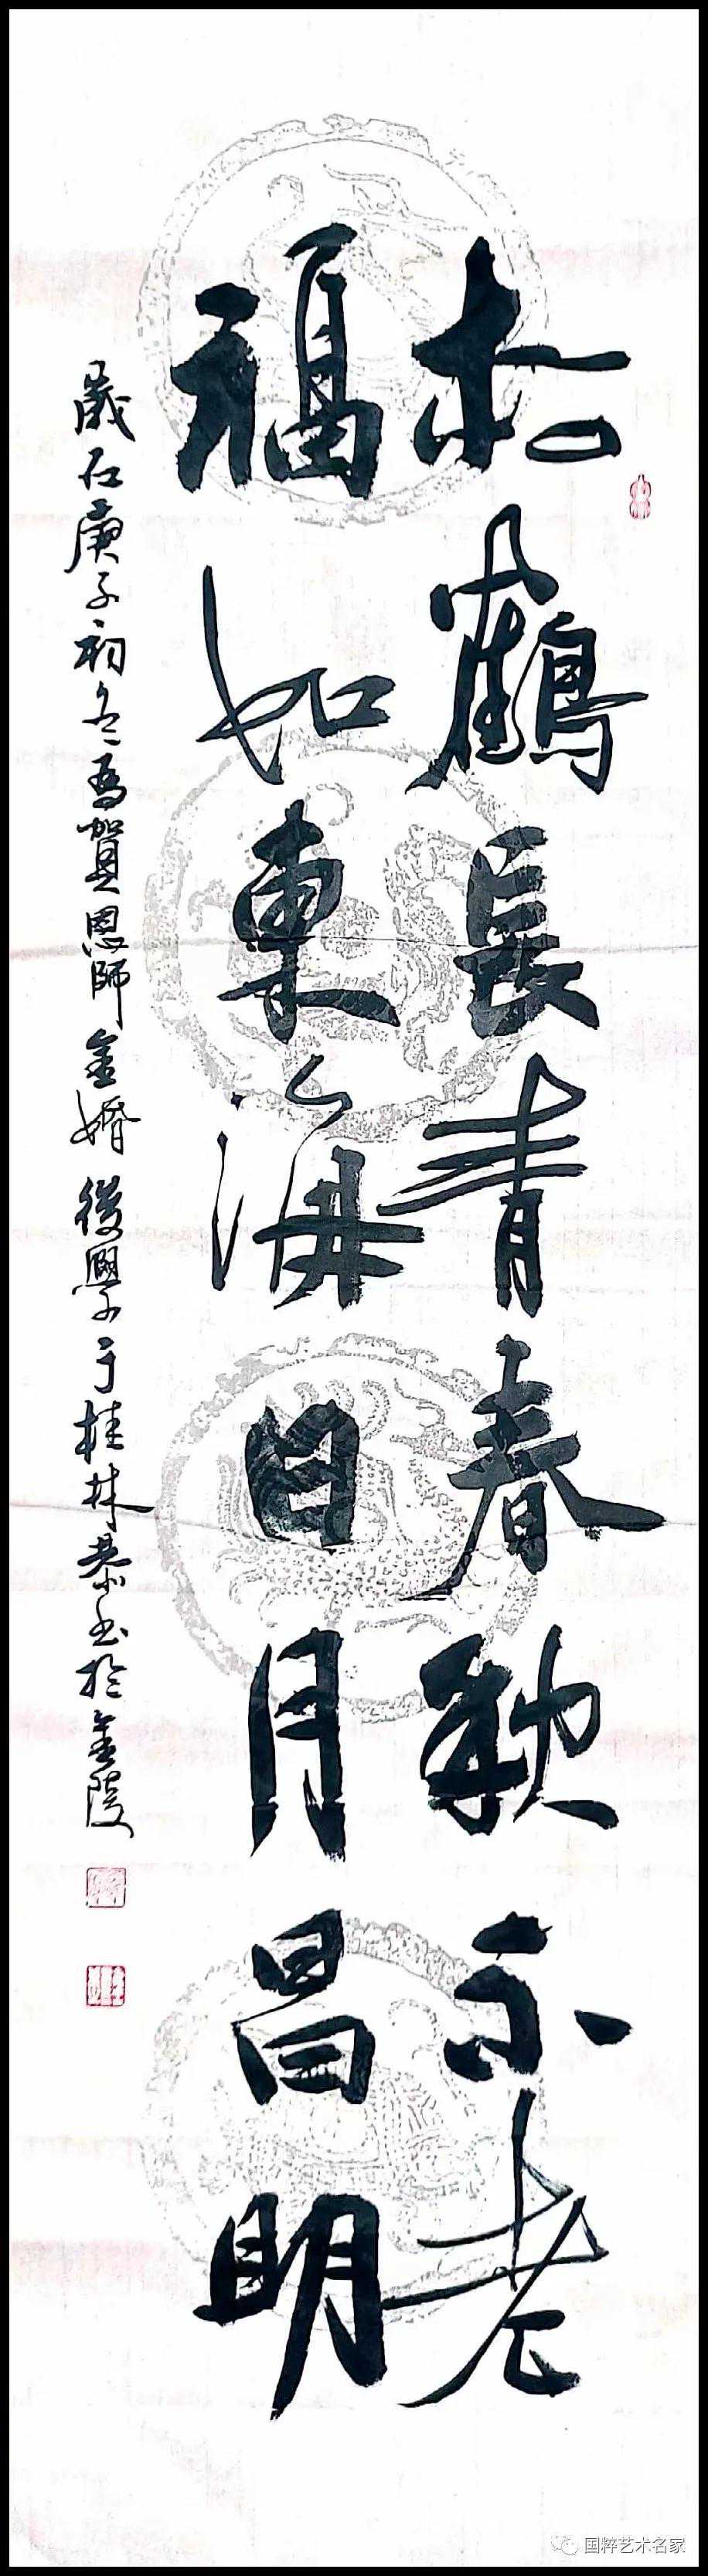 松鶴長青春敏不老
福如東海日月昌明
歲在庚子初冬為賀恩師金婚後學于桂林恭書於金陵
国粹艺术名家